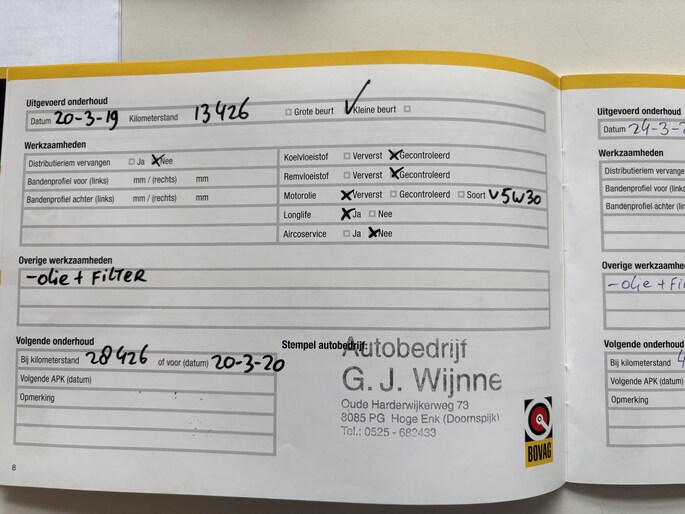 Uitgevoerd onderhoud
Datum 20-3-19 Kilometerstand 13426 Grote beurt Kleine beurt
Werkzaamheden
Distributieriem vervangen Ja Nee
Bandenprofiel voor (links) mm / (rechts) mm
Bandenprofiel achter (links) mm / (rechts) mm
Koelvloeistof Ververst Gecontroleerd
Remvloeistof Ververst Gecontroleerd
Motorolie Ververst Gecontroleerd Soort V5W30
Longlife Ja Nee
Aircoservice Ja Nee
Overige werkzaamheden
-olie + FiLTER
Volgende onderhoud
Bij kilometerstand 28426 of voor (datum) 20-3-20
Volgende APK (datum)
Opmerking
Stempel autobedrijf:
Autobedrijf
G. J. Wijnne
Oude Harderwijkerweg 73
8085 PG Hoge Enk (Doornspijk)
Tel.: 0525 - 682433
BOVAG
8
Uitgevoerd onderhoud
Datum 24-3-
Werkzaamheden
Distributieriem vervangen
Bandenprofiel voor
Bandenprofiel achter
Overige werkzaamheden
-olie +
Volgende onderhoud
Bij kilometerstand
Volgende APK (datum)
Opmerking